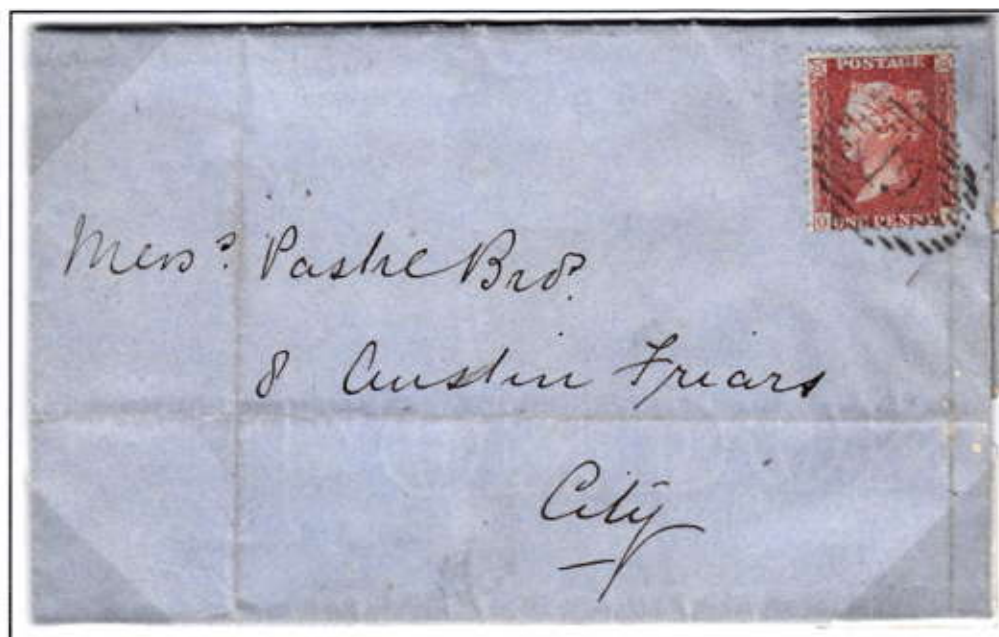 POSTAGE
ONE PENNY
Mess.rs Paske Bros.
8 Austin Friars
City